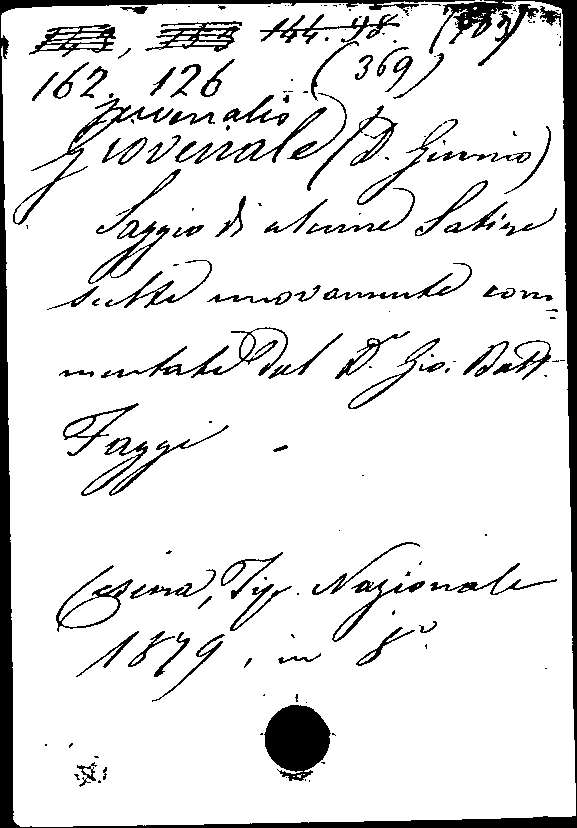 144. 98.
162. 126 (369)
Juvenalis
Giovenale (D. Giunio)
Saggio di alcune Satire
scelte nuovamente com=
mentate dal D.r Gio. Batt.
Faggi -
Cesena, Tip. Nazionale
1879, in 8º.